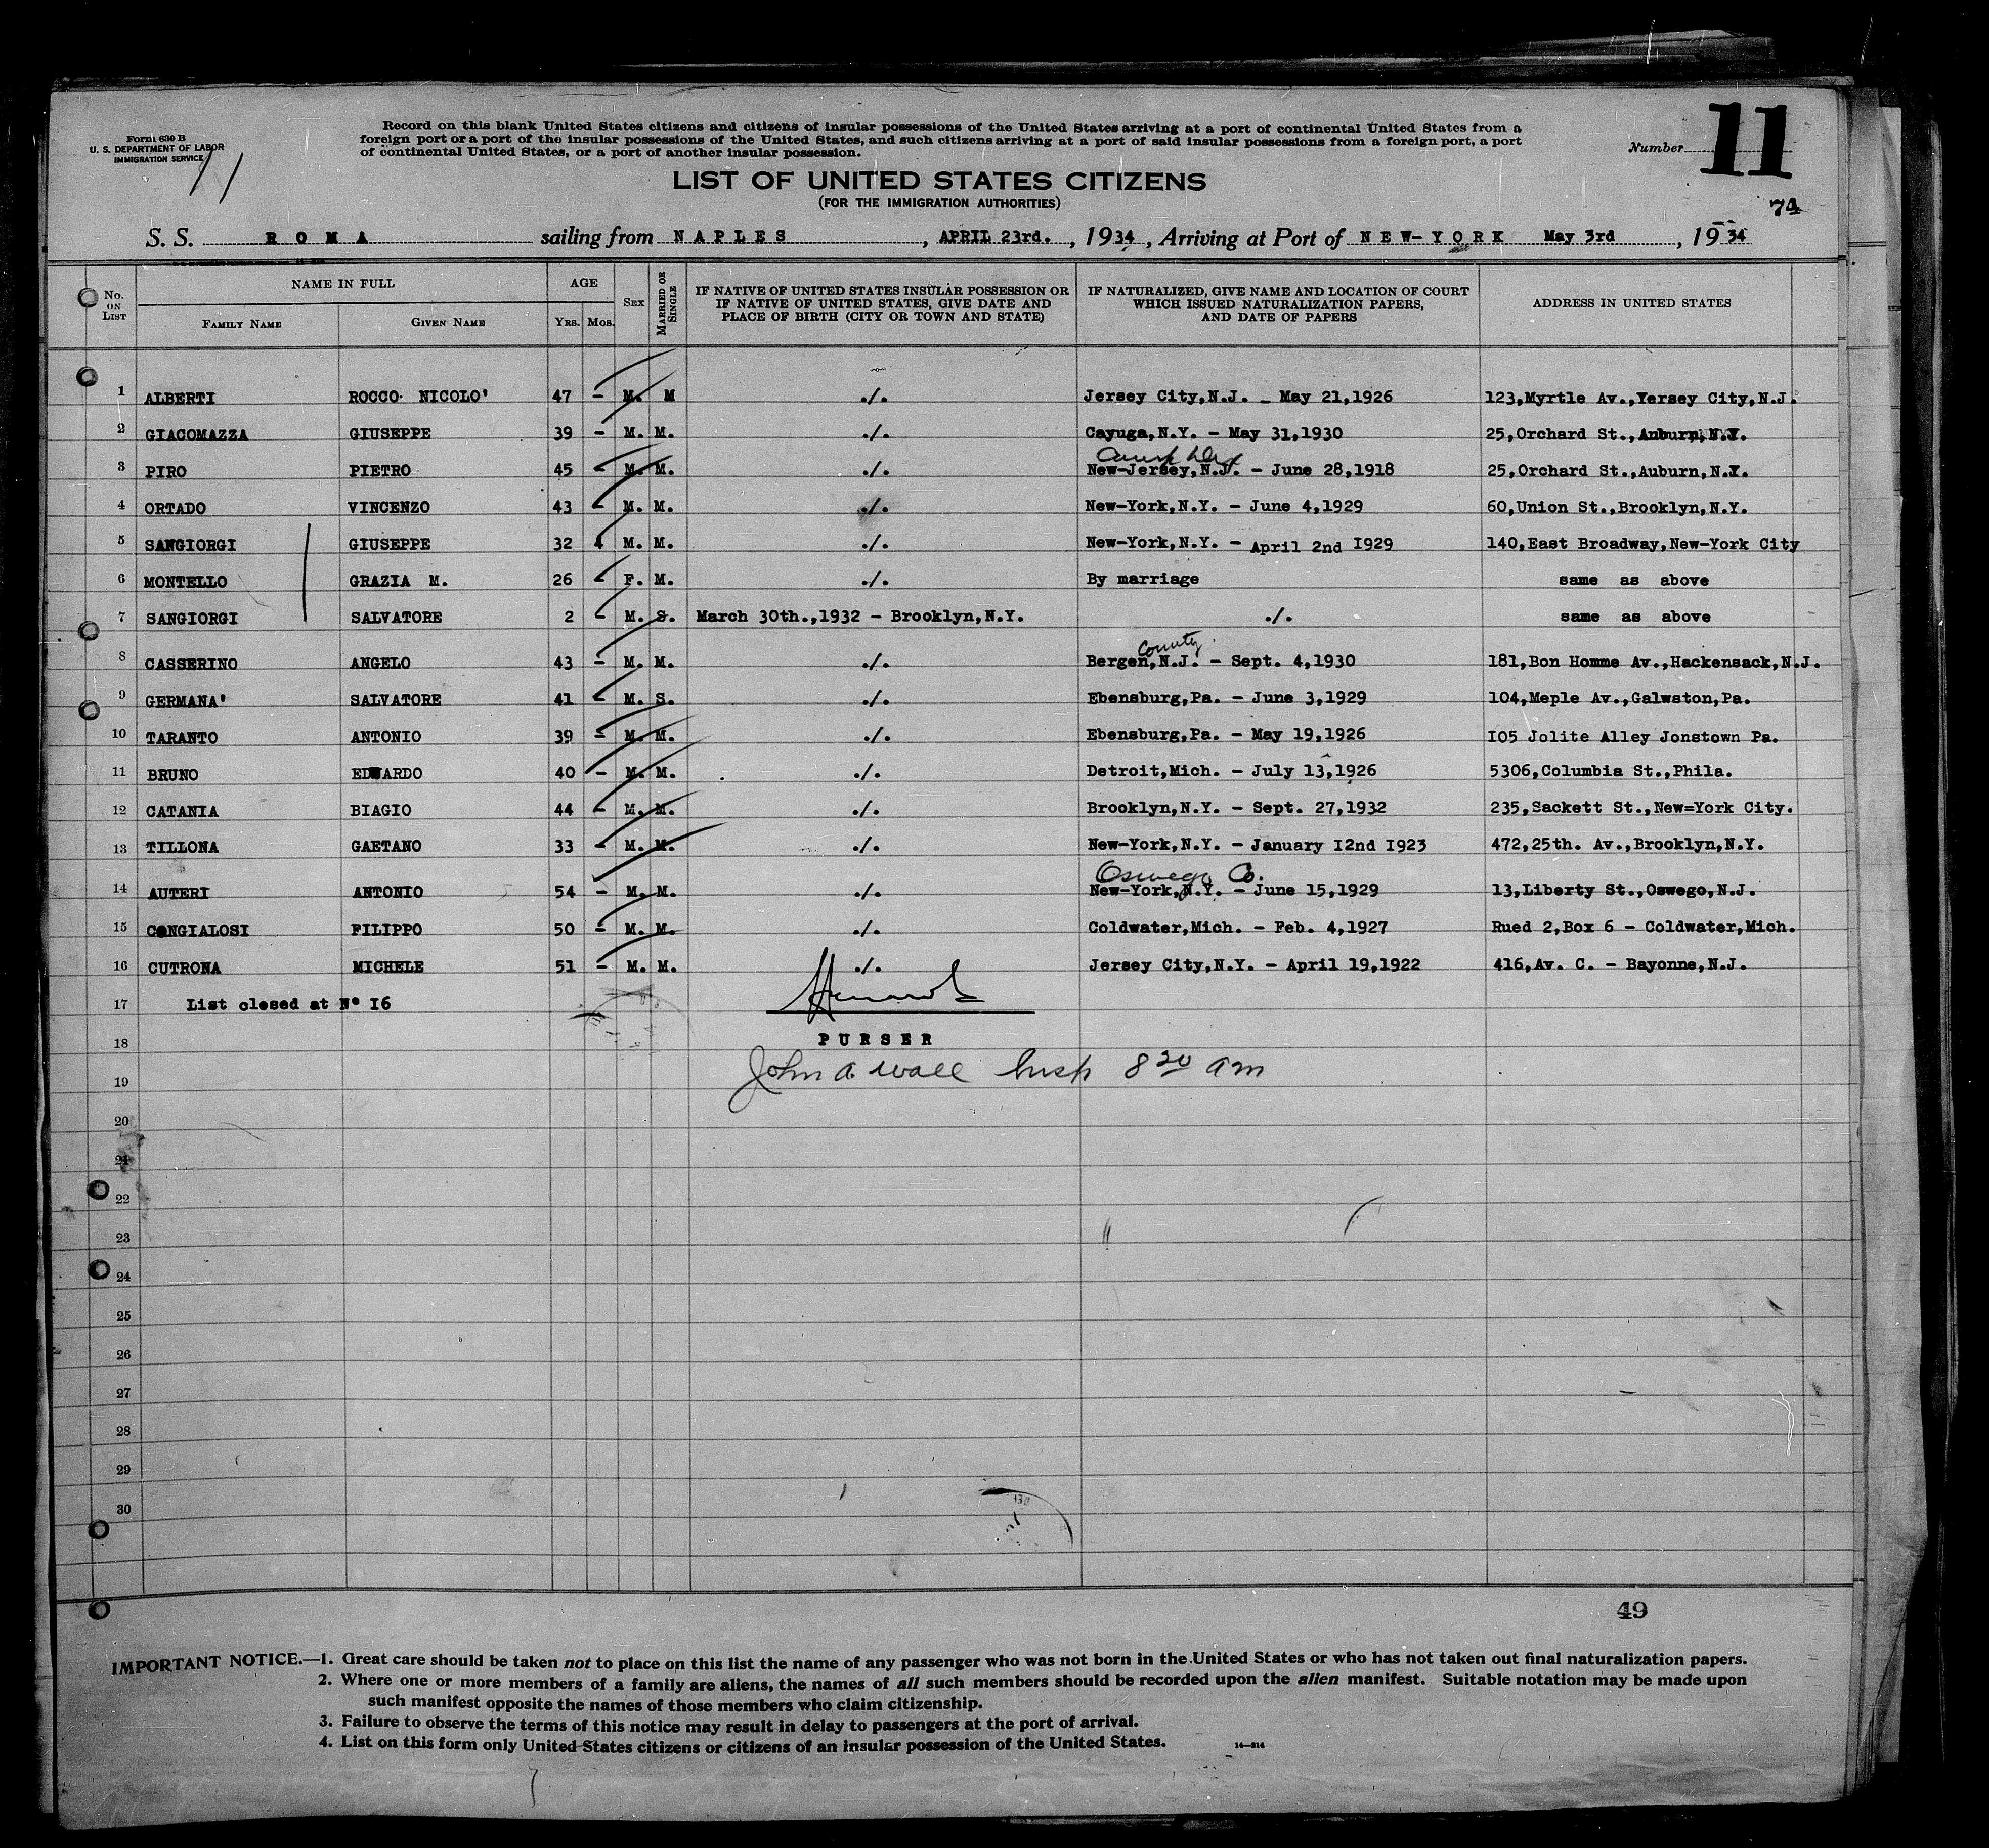 Form 630 B
U. S. DEPARTMENT OF LABOR
IMMIGRATION SERVICE
11
Record on this blank United States citizens and citizens of insular possessions of the United States arriving at a port of continental United States from a
foreign port or a port of the insular possessions of the United States, and such citizens arriving at a port of said insular possessions from a foreign port, a port
of continental United States, or a port of another insular possession.
Number 11
74
LIST OF UNITED STATES CITIZENS
(FOR THE IMMIGRATION AUTHORITIES)
S. S. ROMA sailing from NAPLES, APRIL 23rd., 1934, Arriving at Port of NEW-YORK May 3rd, 1934
No. ON LIST
NAME IN FULL
FAMILY NAME
GIVEN NAME
AGE
YRS. MOS.
SEX
MARRIED OR SINGLE
IF NATIVE OF UNITED STATES INSULAR POSSESSION OR
IF NATIVE OF UNITED STATES, GIVE DATE AND
PLACE OF BIRTH (CITY OR TOWN AND STATE)
IF NATURALIZED, GIVE NAME AND LOCATION OF COURT
WHICH ISSUED NATURALIZATION PAPERS,
AND DATE OF PAPERS
ADDRESS IN UNITED STATES
1 ALBERTI ROCCO NICOLO' 47 - M. M ./. Jersey City,N.J. - May 21,1926 123,Myrtle Av.,Yersey City,N.J.
2 GIACOMAZZA GIUSEPPE 39 - M. M. ./. Cayuga,N.Y. - May 31,1930 25,Orchard St.,Anburn,N.Y.
3 PIRO PIETRO 45 - M. M. ./. New-Jersey,N.J. - June 28,1918 25,Orchard St.,Auburn,N.Y.
4 ORTADO VINCENZO 43 - M. M. ./. New-York,N.Y. - June 4,1929 60,Union St.,Brooklyn,N.Y.
5 SANGIORGI GIUSEPPE 32 4 M. M. ./. New-York,N.Y. - April 2nd I929 140,East Broadway,New-York City
6 MONTELLO GRAZIA M. 26 - F. M. ./. By marriage same as above
7 SANGIORGI SALVATORE 2 - M. S. March 30th.,1932 - Brooklyn,N.Y. ./. same as above
County
8 CASSERINO ANGELO 43 - M. M. ./. Bergen,N.J. - Sept. 4,1930 181,Bon Homme Av.,Hackensack,N.J.
9 GERMANA' SALVATORE 41 - M. S. ./. Ebensburg,Pa. - June 3,1929 104,Meple Av.,Galwston,Pa.
10 TARANTO ANTONIO 39 - M. M. ./. Ebensburg,Pa. - May 19,1926 I05 Jolite Alley Jonstown Pa.
11 BRUNO EDUARDO 40 - M. M. ./. Detroit,Mich. - July 13,1926 5306,Columbia St.,Phila.
12 CATANIA BIAGIO 44 - M. M. ./. Brooklyn,N.Y. - Sept. 27,1932 235,Sackett St.,New=York City.
13 TILLONA GAETANO 33 - M. M. ./. New-York,N.Y. - January I2nd I923 472,25th. Av.,Brooklyn,N.Y.
Oswego Co.
14 AUTERI ANTONIO 54 - M. M. ./. New-York,N.Y. - June 15,1929 13,Liberty St.,Oswego,N.J.
15 CONGIALOSI FILIPPO 50 - M. M. ./. Coldwater,Mich. - Feb. 4,1927 Rued 2,Box 6 - Coldwater,Mich.
16 CUTRONA MICHELE 51 - M. M. ./. Jersey City,N.Y. - April 19,1922 416,Av. C. - Bayonne,N.J.
17 List closed at N° I6
18 PURSER
19 John A Wall Insp 8 20 am
20
21
22
23
24
25
26
27
28
29
30
49
IMPORTANT NOTICE.—1. Great care should be taken not to place on this list the name of any passenger who was not born in the United States or who has not taken out final naturalization papers.
2. Where one or more members of a family are aliens, the names of all such members should be recorded upon the alien manifest. Suitable notation may be made upon
such manifest opposite the names of those members who claim citizenship.
3. Failure to observe the terms of this notice may result in delay to passengers at the port of arrival.
4. List on this form only United States citizens or citizens of an insular possession of the United States.
14—814